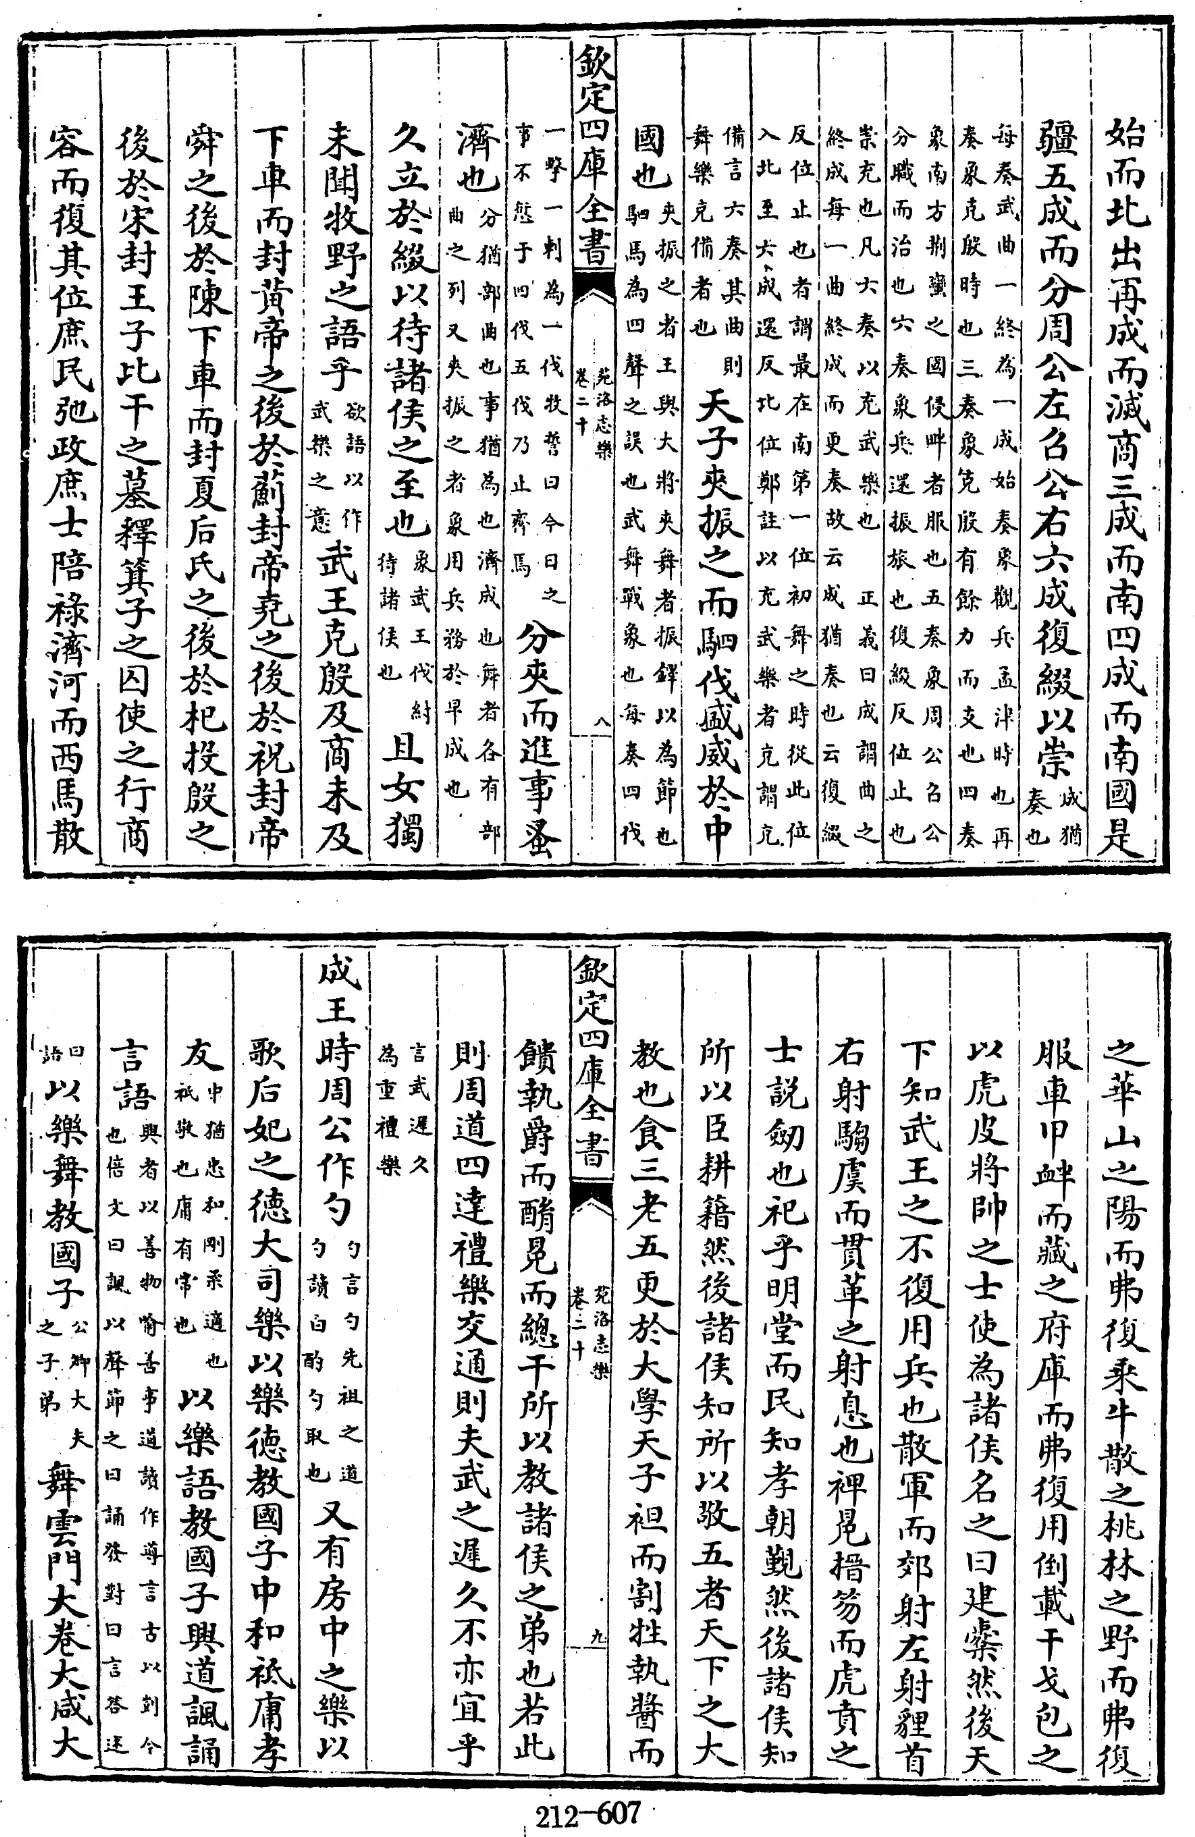 始而北出再成而滅商三成而南四成而南國是
疆五成而分周公左召公右六成復綴以崇成猶奏也
每奏武曲一終為一成始奏象觀兵孟津時也再
奏象克殷時也三奏象克殷有餘力而反也四奏
象南方荆蠻之國侵畔者服也五奏象周公召公
分職而治也六奏象兵還振旅也復綴反位止也
崇充也凡六奏以充武樂也　正義曰成謂曲之
終成每一曲終成而更奏故云成猶奏也云復綴
反位止也者謂最在南第一位初舞之時從此位
入北至六成還反北位鄭註以充武樂者充謂充
備言六奏其曲則
舞樂充備者也
天子夾振之而駟伐盛威於中
國也夾振之者王與大將夾舞者振鐸以為節也
駟馬為四聲之誤也武舞戰象也每奏四伐
欽定四庫全書
苑洛志樂
卷二十
八
一擊一刺為一伐牧誓曰今日之
事不愆于四伐五伐乃止齊焉
分夾而進事蚤
濟也分猶部曲也事猶為也濟成也舞者各有部
曲之列又夾振之者象用兵務於早成也
久立於綴以待諸侯之至也象武王伐紂待諸侯也且女獨
未聞牧野之語乎欲語以作武樂之意武王克殷及商未及
下車而封黄帝之後於薊封帝堯之後於祝封帝
舜之後於陳下車而封夏后氏之後於杞投殷之
後於宋封王子比干之墓釋箕子之囚使之行商
容而復其位庶民弛政庶士陪祿濟河而西馬散
之華山之陽而弗復乘牛散之桃林之野而弗復
服車甲衅而藏之府庫而弗復用倒載干戈包之
以虎皮將帥之士使為諸侯名之曰建櫜然後天
下知武王之不復用兵也散軍而郊射左射貍首
右射騶虞而貫革之射息也裨冕搢笏而虎賁之
士說劒也祀乎明堂而民知孝朝覲然後諸侯知
所以臣耕籍然後諸侯知所以敬五者天下之大
教也食三老五更於大學天子袒而割牲執醬而
欽定四庫全書
苑洛志樂
卷二十
九
饋執爵而酳冕而總干所以教諸侯之弟也若此
則周道四達禮樂交通則夫武之遲久不亦宜乎
言武遲久
為重禮樂
成王時周公作勺勺言勺先祖之道勺讀曰酌勺取也又有房中之樂以
歌后妃之德大司樂以樂德教國子中和祗庸孝
友中猶忠和剛柔適也祗敬也庸有常也以樂語教國子興道諷誦
言語興者以善物喻善事道讀作導言古以剴今
也倍文曰諷以聲節之曰誦發對曰言答述
曰語以樂舞教國子公卿大夫之子弟舞雲門大卷大咸大
212-607